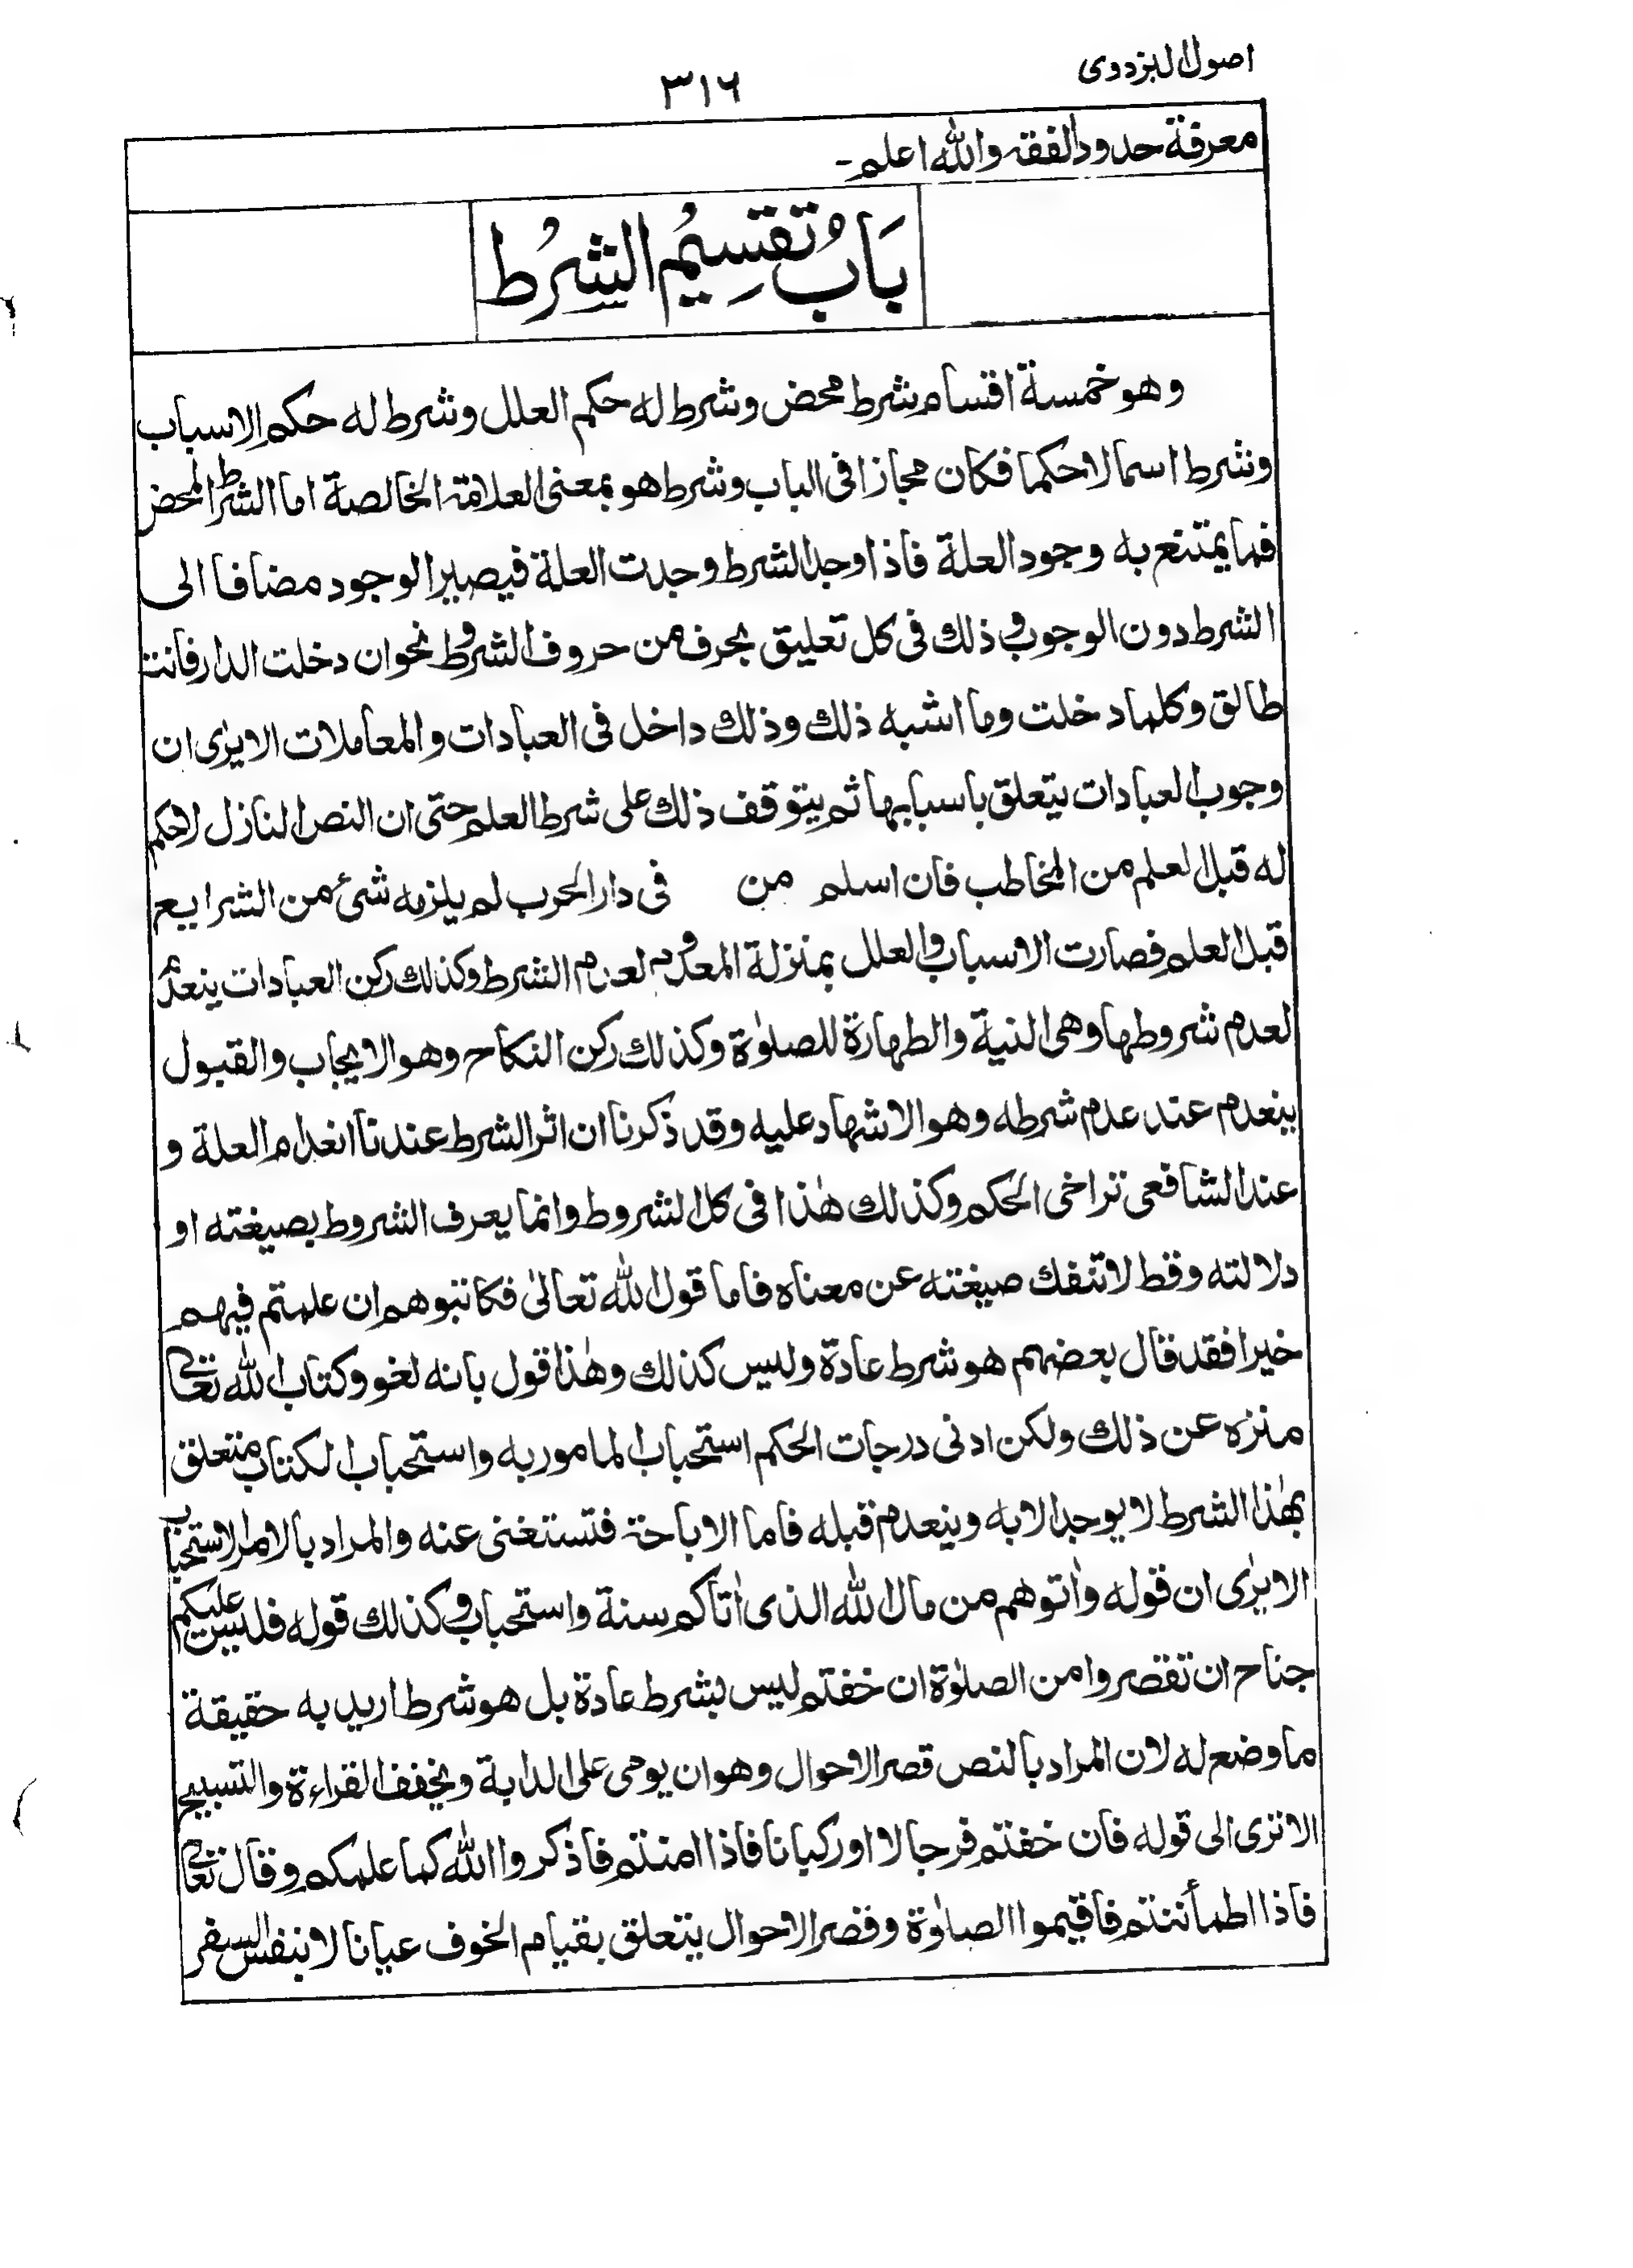 اصول البزدوی
٣١٦
معرفة حدود الفقه والله اعلم۔
بَابُ تقسِيمُ الشرُط
وهو خمسة اقسام شرط محض وشرط له حكم العلل وشرط له حكم الاسباب
وشرط اسما لا حكما فكان مجازا فی الباب وشرط هو بمعنی العلامة الخالصة اما الشرط المحض
فما يمتنع به وجود العلة فاذا وجد الشرط وجدت العلة فيصير الوجود مضافا الی
الشرط دون الوجوب وذلك فی كل تعليق بحرف من حروف الشروط نحو ان دخلت الدار فانت
طالق وكلما دخلت وما اشبه ذلك وذلك داخل فی العبادات والمعاملات الا يرى ان
وجوب العبادات يتعلق باسبابها ثم يتوقف ذلك علی شرط العلم حتی ان النص النازل لا حكم
له قبل العلم من المخاطب فان اسلم من فی دار الحرب لم يلزمه شئ من الشرايع
قبل العلم فصارت الاسباب والعلل بمنزلة المعدوم لعدم الشرط وكذلك ركن العبادات ينعدم
لعدم شروطها وهی النية والطهارة للصلوٰة وكذلك ركن النكاح وهو الايجاب والقبول
ينعدم عند عدم شرطه وهو الاشهاد عليه وقد ذكرنا ان اثر الشرط عندنا انعدام العلة و
عند الشافعی تراخی الحكم وكذلك هٰذا فی كل الشروط وانما يعرف الشروط بصيغته او
دلالته وقط لا تنفك صيغته عن معناه فاما قول الله تعالیٰ فكاتبوهم ان علمتم فيهم
خيرا فقد قال بعضهم هو شرط عادة وليس كذلك وهٰذا قول بانه لغو وكتاب الله تعالی
منزه عن ذلك ولكن ادنی درجات الحكم استحباب المامور به واستحباب الكتاب متعلق
بهٰذا الشرط لا يوجد الا به وينعدم قبله فاما الاباحة فتستغنی عنه والمراد بالامر الاستحباب
الا يرٰی ان قوله واٰتوهم من مال الله الذی اٰتاكم سنة واستحباب وكذلك قوله فليس عليكم
جناح ان تقصروا من الصلوٰة ان خفتم ليس بشرط عادة بل هو شرط اريد به حقيقة
ما وضع له لان المراد بالنص قصر الاحوال وهو ان يومی علی الدابة ويخفف القراءة والتسبيح
الا تری الی قوله فان خفتم فرجالا او ركبانا فاذا امنتم فاذكروا الله كما علمكم وقال تعالی
فاذا اطمأننتم فاقيموا الصلوٰة وقصر الاحوال يتعلق بقيام الخوف عيانا لا بنفس السفر